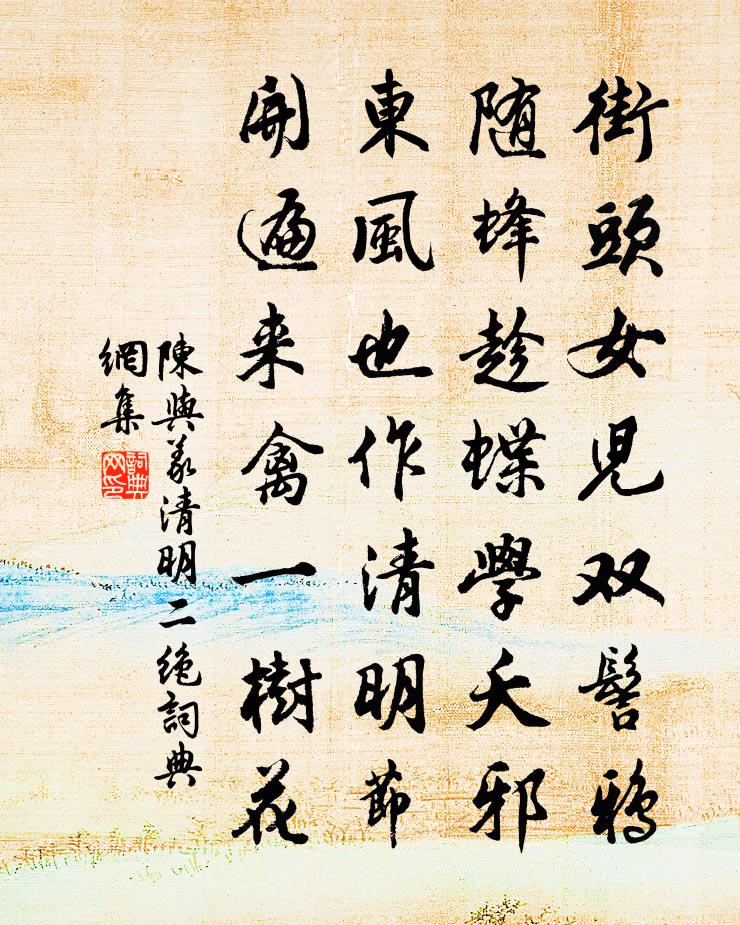 街頭女兒双髻鴉
随蜂趁蝶學夭邪
東風也作清明節
開遍来禽一樹花
陳與義清明二绝詞典
網集
詞典网印